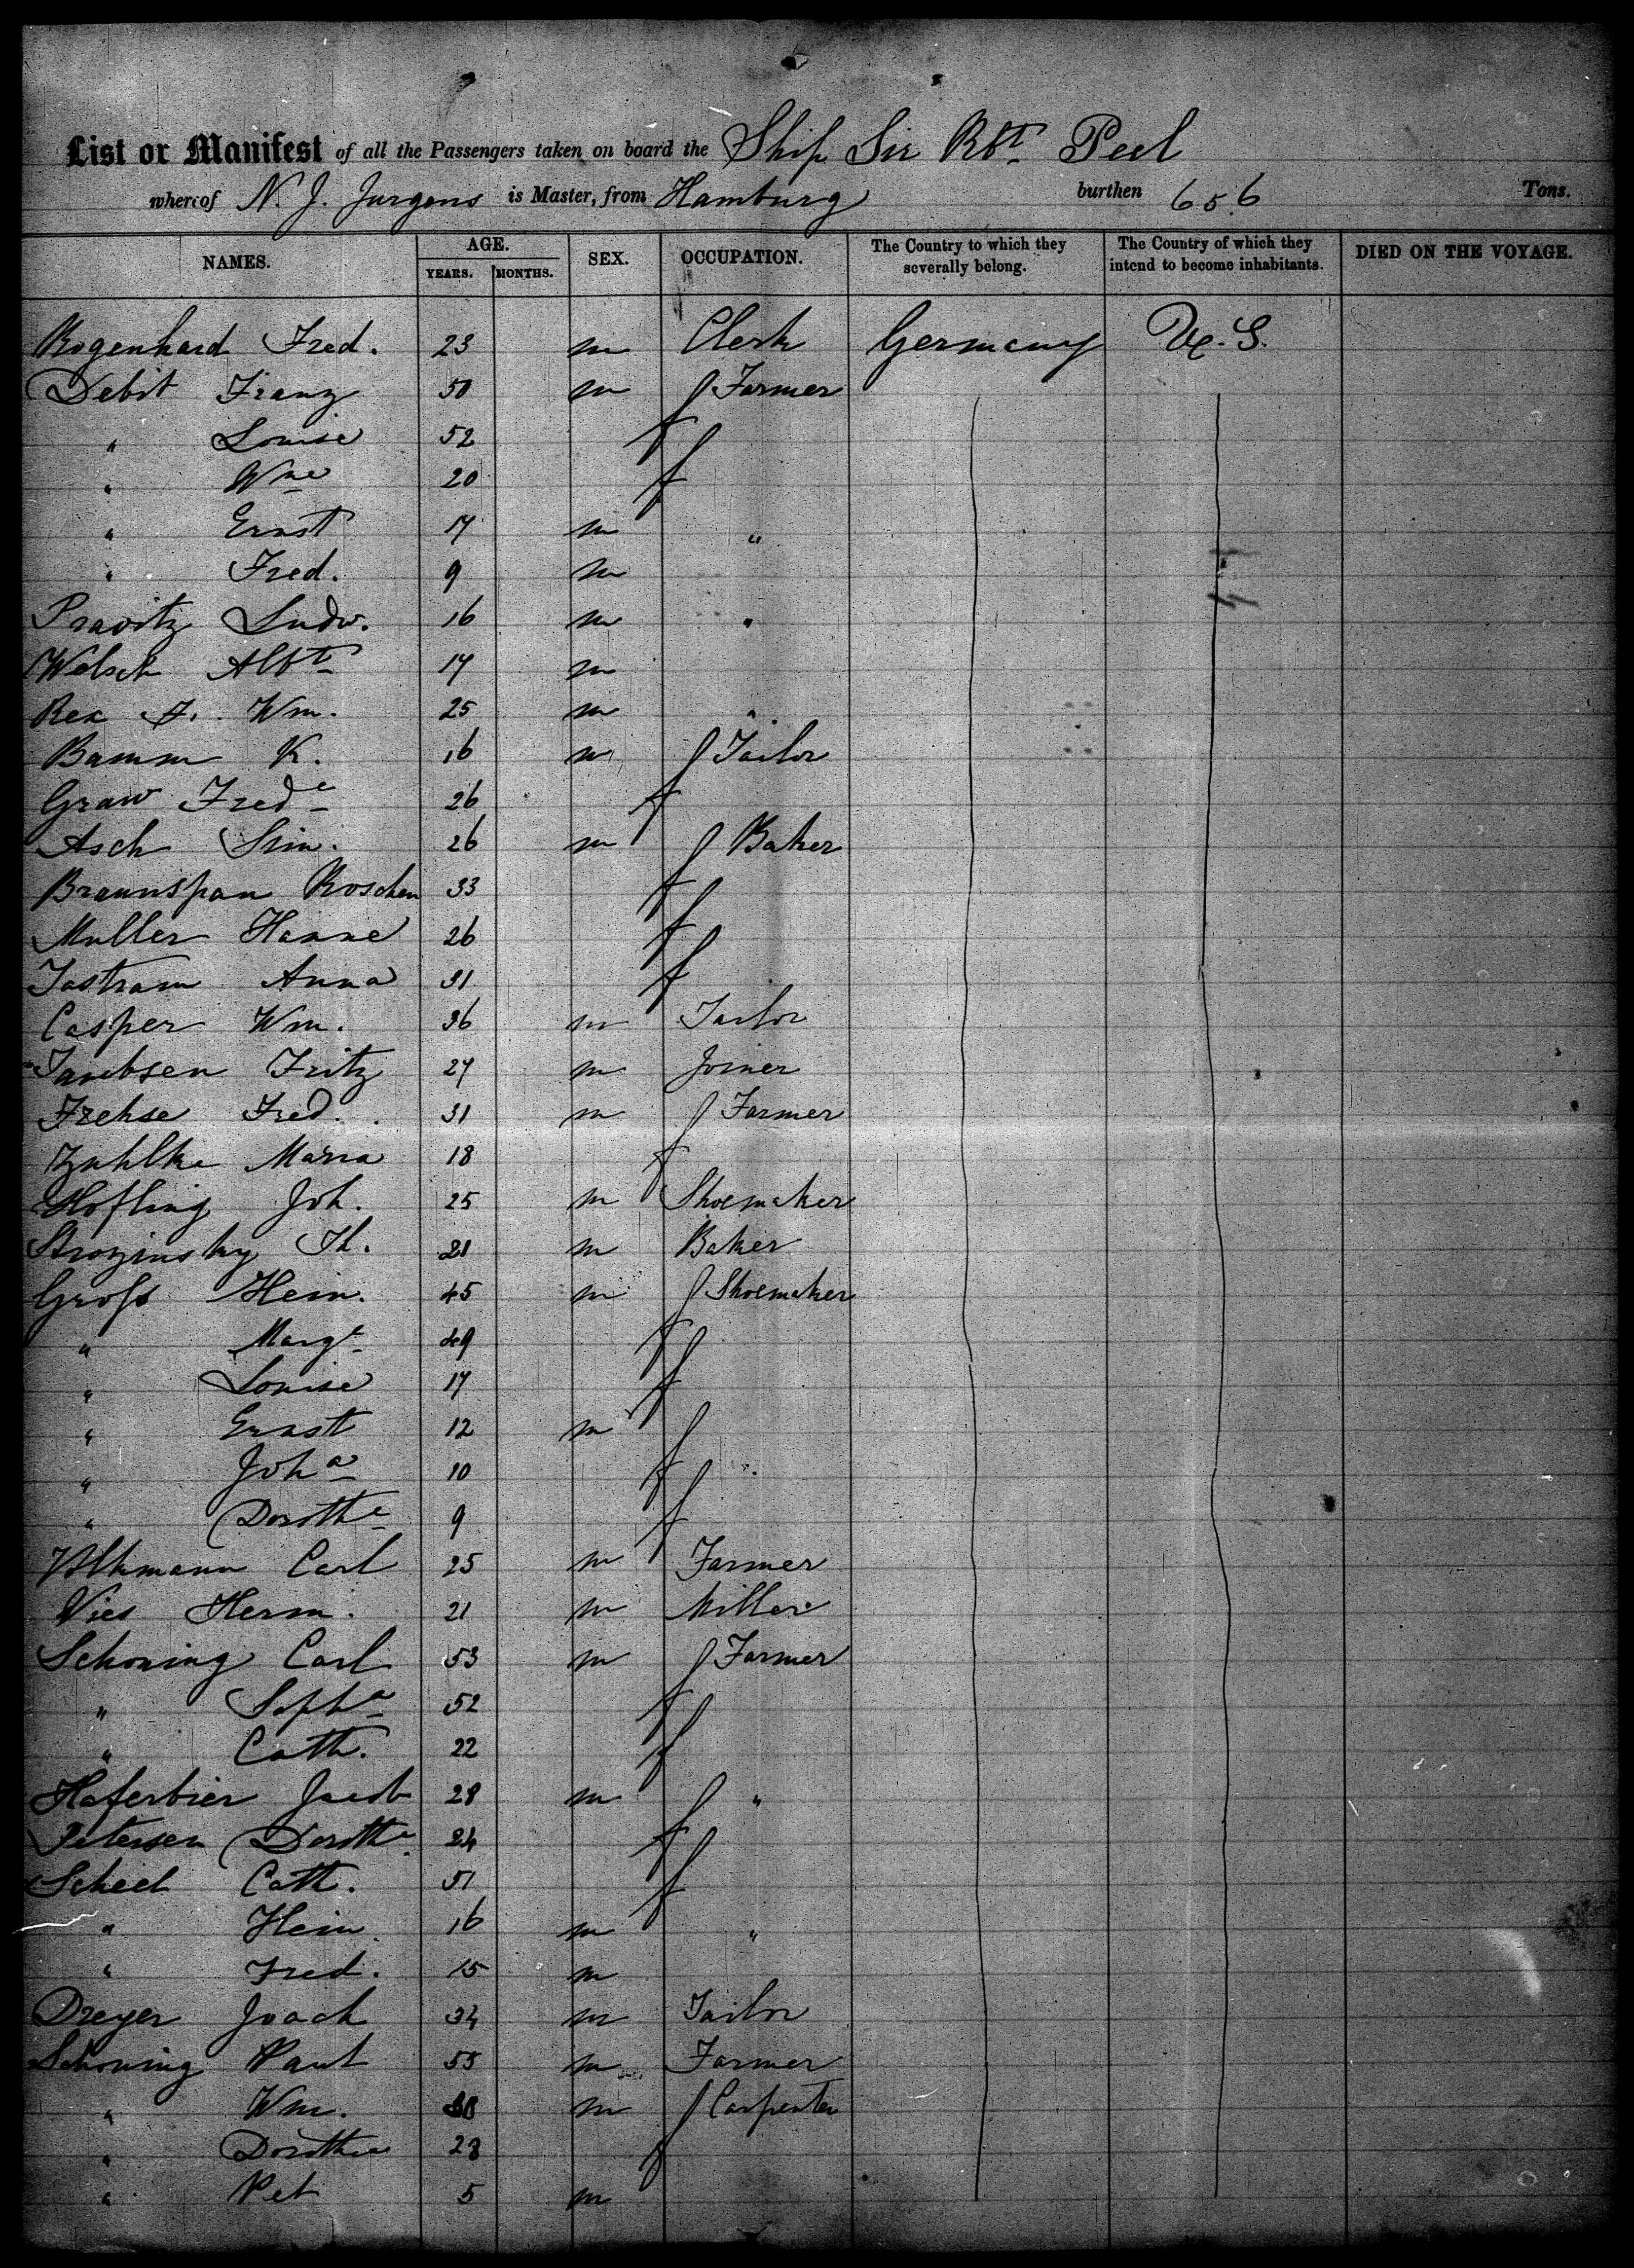 List or Manifest of all the Passengers taken on board the Ship Sir Rbt Peel
whereof N. J. Jurgens is Master, from Hamburg burthen 656 Tons.
NAMES. AGE. YEARS. MONTHS. SEX. OCCUPATION. The Country to which they severally belong. The Country of which they intend to become inhabitants. DIED ON THE VOYAGE.
Rogenhard Fred. 23 m Clerk Germany U. S.
Debit Franz 50 m Farmer
" Louise 52 f
" Wme 20 f
" Ernst 17 m "
" Fred. 9 m
Pravitz Ludw. 16 m "
Welsch Albt 17 m
Rex F. Wm. 25 m "
Bamm K. 16 m Tailor
Graw Frede 26 f
Asch Sim. 26 m Baker
Braunspan Roschen 33 f
Muller Hanne 26 f
Jastram Anna 31 f
Casper Wm. 36 m Tailor
Jacobsen Fritz 27 m Joiner
Frehse Fred. 31 m Farmer
Zuhlke Maria 18 f
Hofling Joh. 25 m Shoemaker
Strozinsky Th. 21 m Baker
Gross Hein. 45 m Shoemaker
" Marge 49 f
" Louise 17 f
" Ernst 12 m
" Joha 10 f
" Dorothe 9 f
Volkmann Carl 25 m Farmer
Vies Herm. 21 m Miller
Schoning Carl 53 m Farmer
" Sopha 52 f
" Cath. 22 f
Haferbier Jacob 28 m "
Petersen Dorothe 24 f
Scheel Cath. 51 f
" Hein. 16 m "
" Fred. 15 m
Dreyer Joach 34 m Tailor
Schoning Paul 55 m Farmer
" Wm. m Carpenter
" Dorothea 28 f
" Pet 5 m